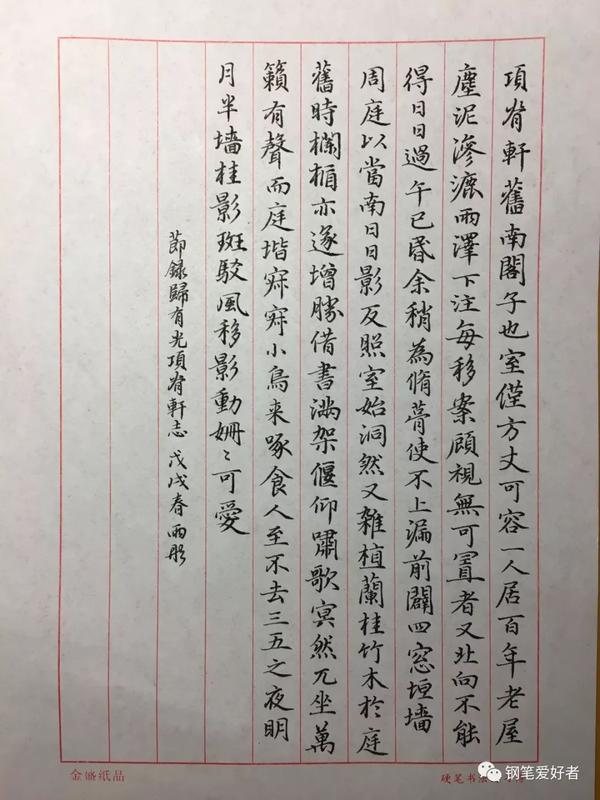 項脊軒舊南閣子也室僅方丈可容一人居百年老屋
塵泥滲漉雨澤下注每移案顧視無可置者又北向不能
得日日過午已昏余稍為脩葺使不上漏前闢四窓垣墻
周庭以當南日日影反照室始洞然又雜植蘭桂竹木於庭
舊時欄楯亦遂增勝借書滿架偃仰嘯歌冥然兀坐萬
籟有聲而庭堦寂寂小鳥来啄食人至不去三五之夜明
月半墻桂影斑駁風移影動姍〻可愛
節録歸有光項脊軒志 戊戌春雨彤
金盛纸品
硬笔书法
钢笔爱好者